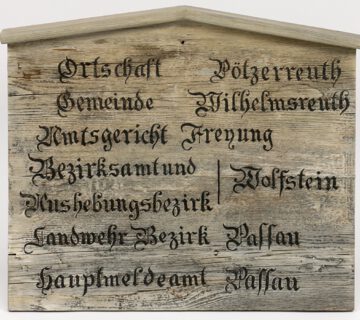 Ortschaft Pötzerreuth
Gemeinde Wilhelmsreuth
Amtsgericht Freyung
Bezirksamt und
Aushebungsbezirk | Wolfstein
Landwehr Bezirk Passau
Hauptmeldeamt Passau